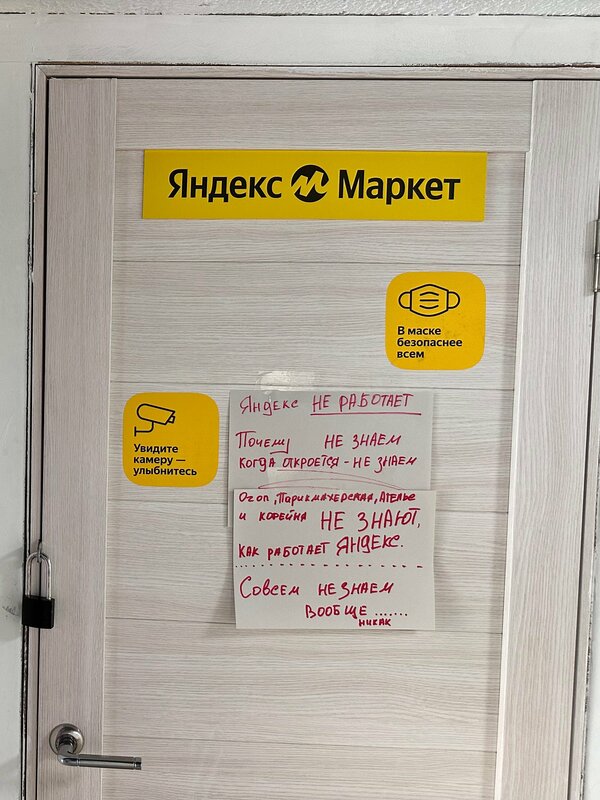 Яндекс Маркет
В маске
безопаснее
всем
Увидите
камеру —
улыбнитесь
Яндекс НЕ РАБОТАЕТ
Почему НЕ ЗНАЕМ
когда откроется - НЕ ЗНАЕМ
Озон, Парикмахерская, Ателье
и кофейна НЕ ЗНАЮТ,
как работает ЯНДЕКС.
Совсем НЕ ЗНАЕМ
ВООБЩЕ .......
никак